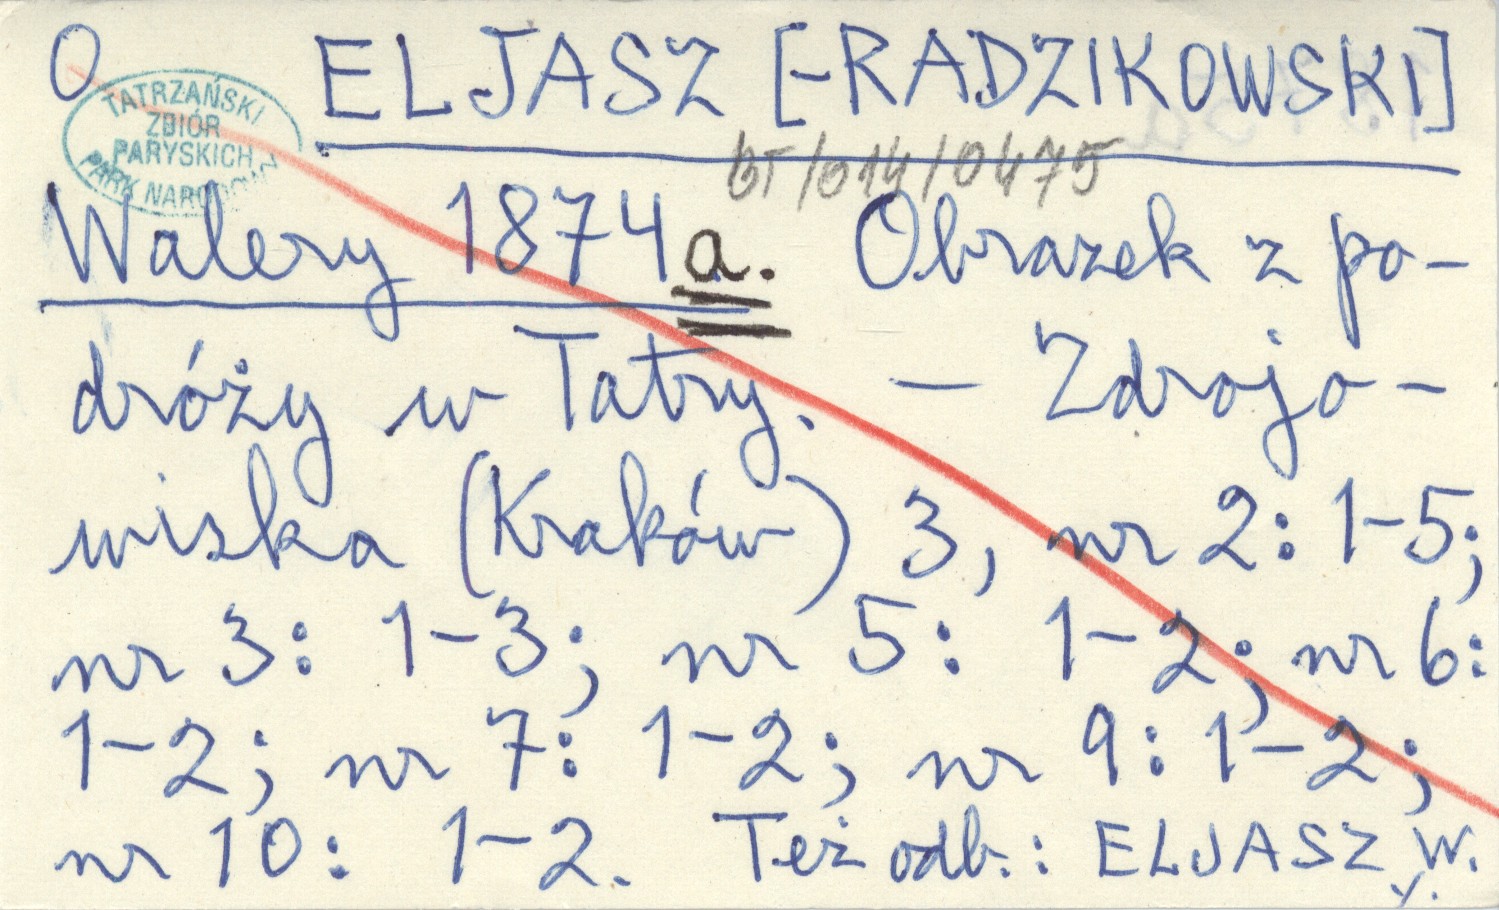 O ELJASZ [-RADZIKOWSKI]
TATRZAŃSKI
ZBIÓR
PARYSKICH
PARK NARODOWY
BT/014/0475
Walery 1874a. Obrazek z po-
dróży w Tatry. — Zdrojo-
wiska (Kraków) 3, nr 2: 1-5;
nr 3: 1-3; nr 5: 1-2; nr 6:
1-2; nr 7: 1-2; nr 9: 1-2;
nr 10: 1-2. Też odb.: ELJASZ W.